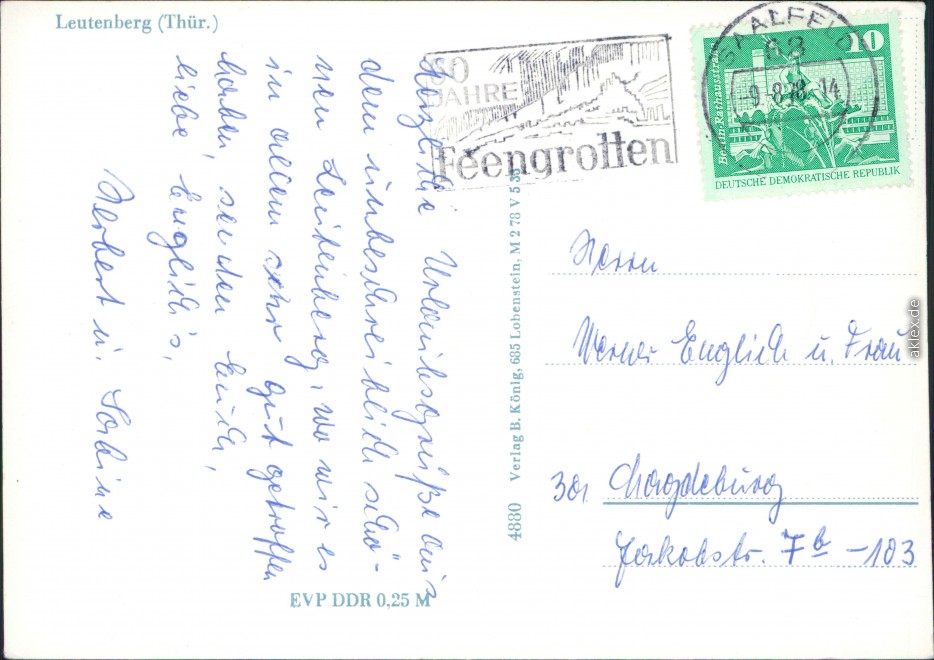 Leutenberg (Thür.)
SAALFELD
68
9.-8.78.-14
60
JAHRE
Feengrotten
10
Berlin-Rathausstraße
DEUTSCHE DEMOKRATISCHE REPUBLIK
Herzliche Urlaubsgrüße aus
dem unbeschreiblich schö-
nen Leutenberg, wo wir es
in allem sehr gut getroffen
haben, senden Euch,
liebe Englich's,
Herbert u. Sabine
4880 Verlag B. König, 685 Lobenstein, M 2 78 V 5 30
EVP DDR 0,25 M
Herrn
Werner Englich u. Frau
301 Magdeburg
Jakobstr. 7b - 103
aklex.de